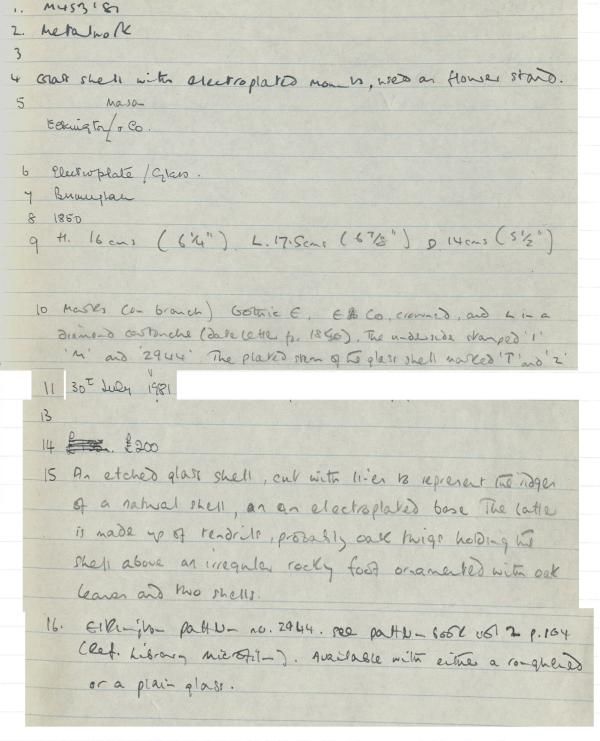 1. M453'81
2. Metalwork
3
4 Glass shell with electroplated mounts, used as flower stand.
5 Mason
Elkington / & Co.
6 Electroplate / Glass.
7 Birmingham
8 1850
9 H. 16 cms (6 1/4") L. 17.5cms (6 7/8") D 14cms (5 1/2")
10 Marks (on branch) Gothic E, E & Co, crowned, and L in a
diamond cartouche (date letter for 1850). The underside stamped '1'
'M' and '2944' The plated stem of the glass shell marked 'T' and '2'
11 30th July 1981
13
14 £200
15 An etched glass shell, cut with lines to represent the ridges
of a natural shell, on an electroplated base The latter
is made up of tendrils, probably oak twigs holding the
shell above an irregular rocky foot ornamented with oak
leaves and two shells.
16. Elkington pattern no. 2944. see pattern book vol 2 p.164
(Ref. Library Microfilm). Available with either a roughened
or a plain glass.